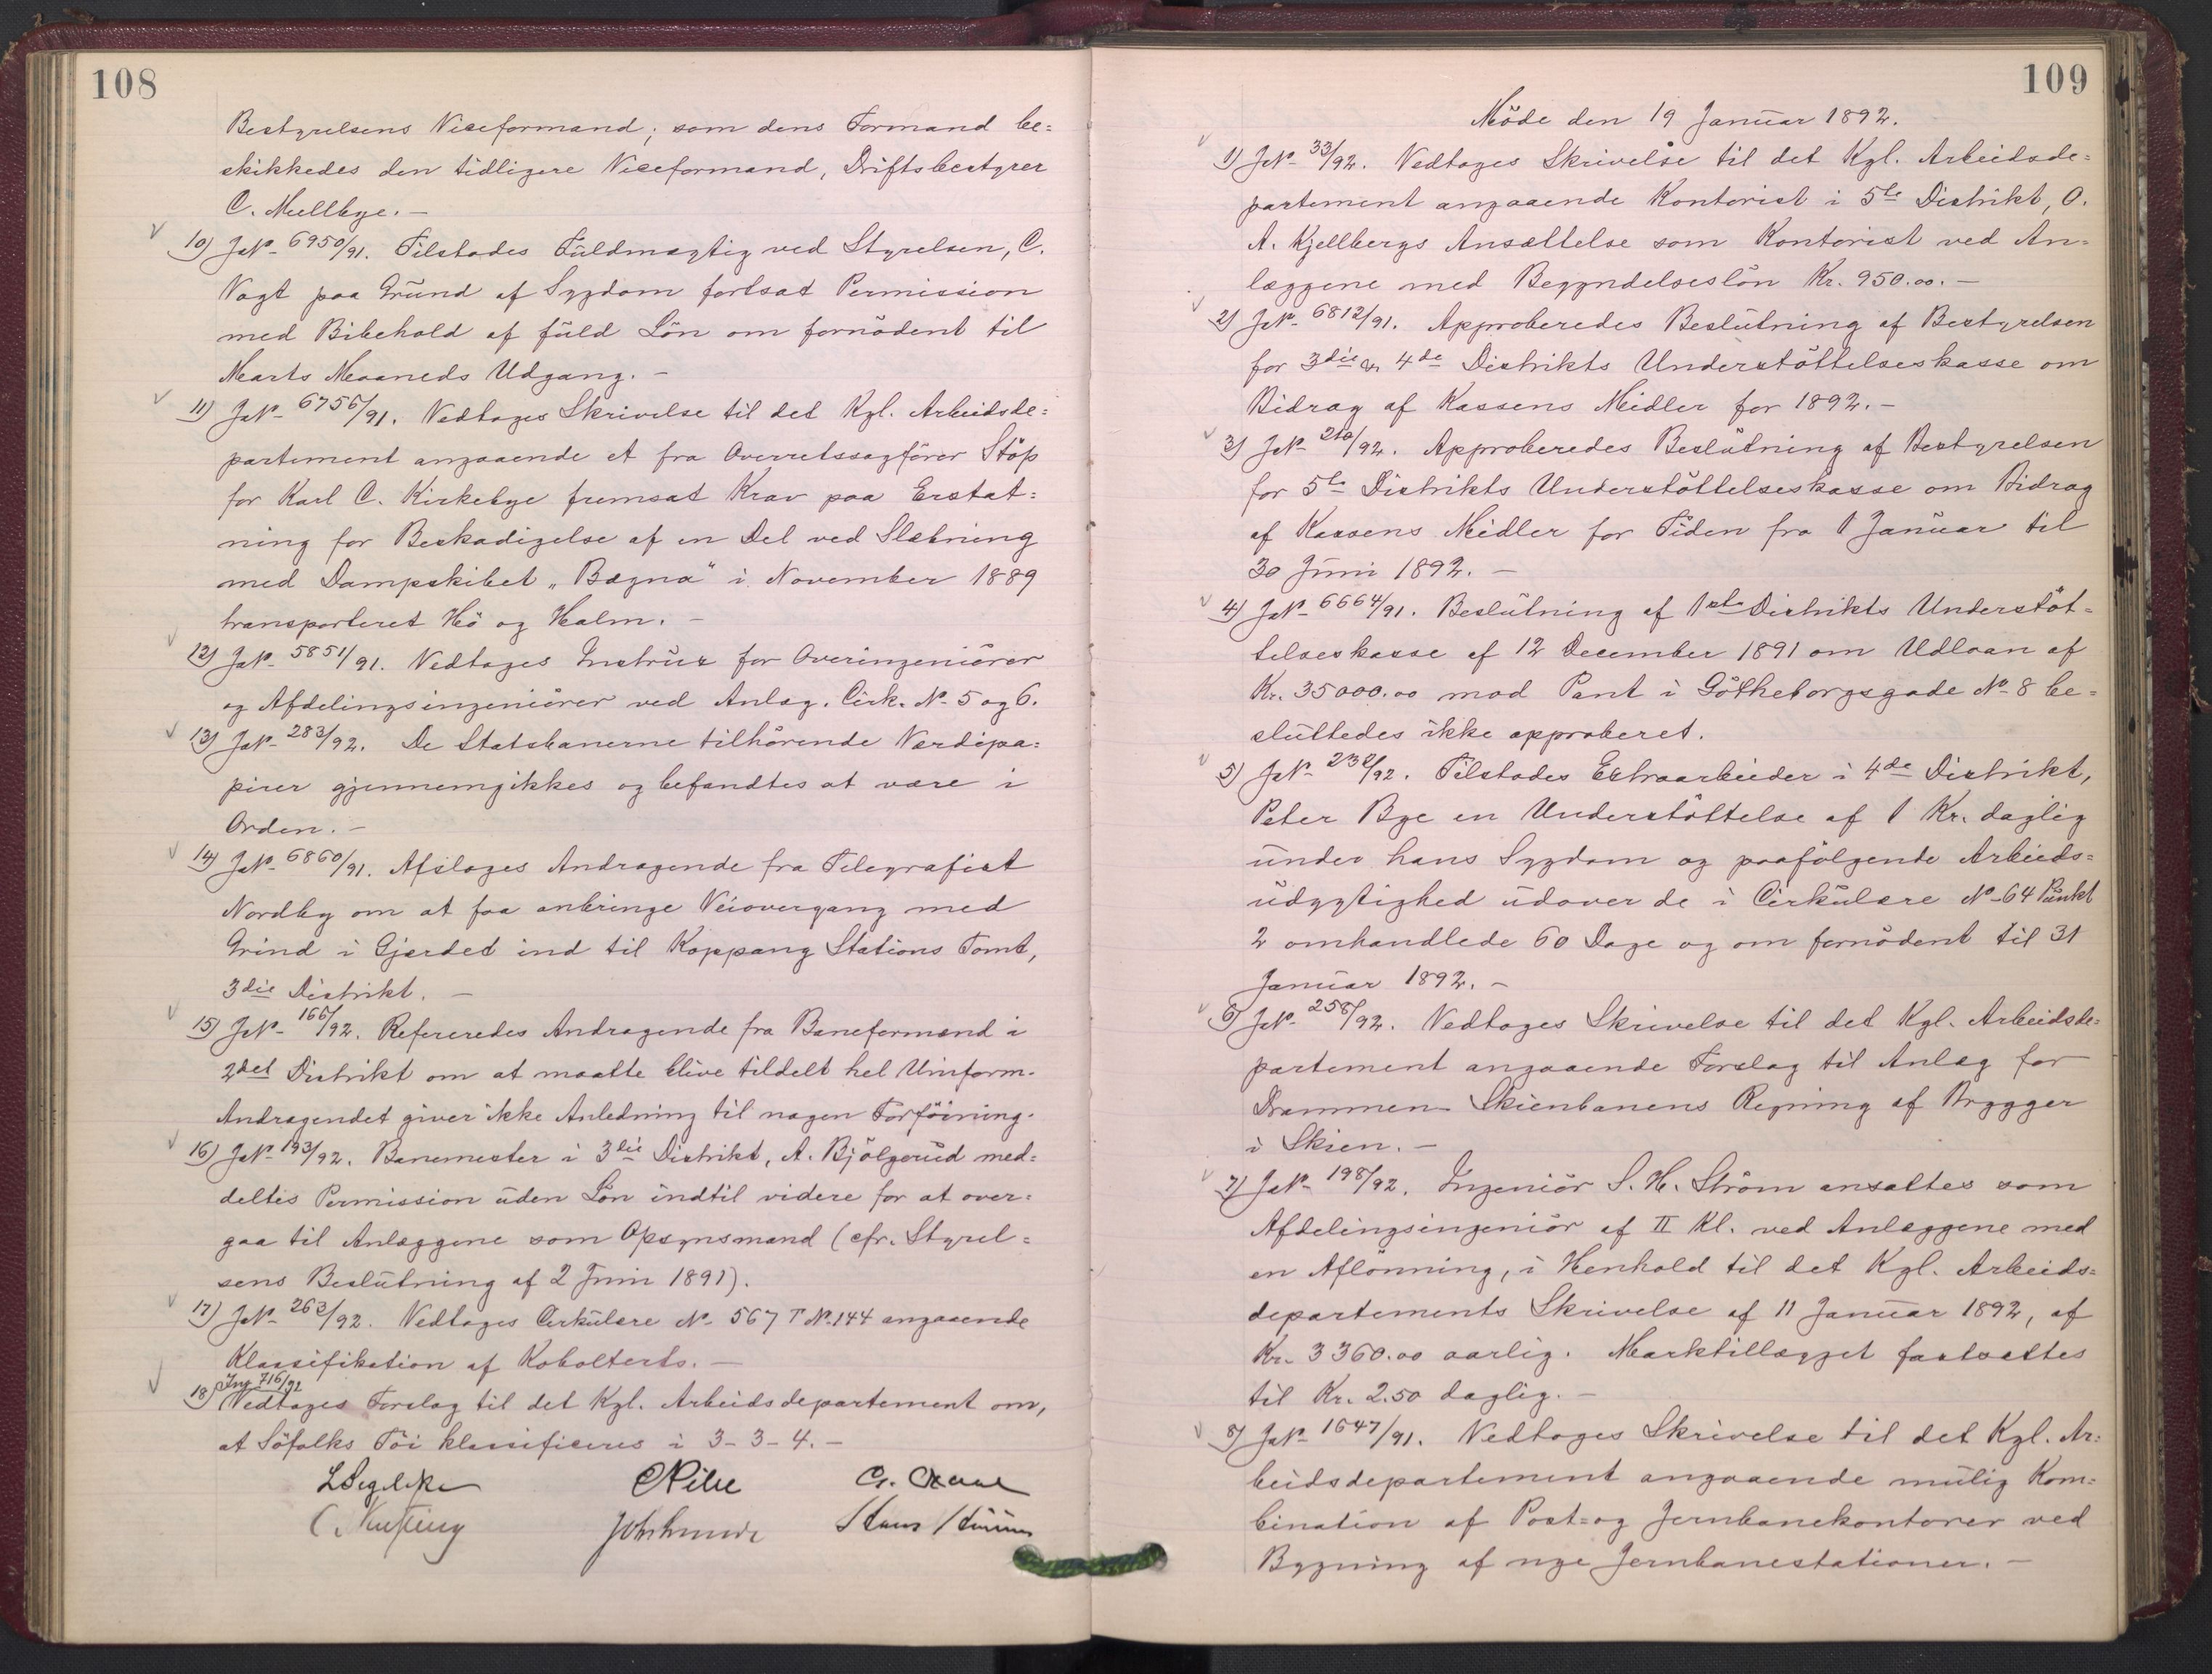 108
Bestyrelsens Viceformand; som dens Formand be=
skikkedes den tidligere Viceformand, Driftsbestyrer
C. Mellbye. —
10) JN° 6950/91. Tilstodes Fuldmægtig ved Styrelsen, C.
Vogt paa Grund af Sygdom fortsat Permission
med Bibehold af fuld Lön om fornödent til
Marts Maaneds Udgang. —
11) JN° 6756/91. Vedtoges Skrivelse til det Kgl. Arbeidsde=
partement angaaende et fra Overretssagförer Stöp
for Karl C. Kirkebye fremsat Krav paa Erstat=
ning for Beskadigelse af en Del ved Slæbning
med Dampskibet „Bægna" i November 1889
transporteret Hö og Halm. —
12) JN° 5851/91. Vedtoges Instrux for Overingeniörer
og Afdelingsingeniörer ved Anlæg. Cirk. N° 5 og 6.
13) JN° 283/92. De Statsbanerne tilhörende Værdipa=
pirer gjennemgikkes og befandtes at være i
Orden. —
14) JN° 6860/91. Afsloges Andragende fra Telegrafist
Nordby om at faa anbringe Veiovergang med
Grind i Gjerdet ind til Koppang Stations Tomt,
3die Distrikt. —
15) JN° 166/92. Refereredes Andragende fra Baneformænd i
2det Distrikt om at maatte blive tildelt hel Uniform.
Andragendet giver ikke Anledning til nogen Forföining.
16) JN° 193/92. Banemester i 3die Distrikt, A. Bjölgerud med=
deltes Permission uden Lön indtil videre for at over=
gaa til Anlæggene som Opsynsmand (cfr. Styrel=
sens Beslutning af 2 Juni 1891).
17) JN° 263/92. Vedtoges Cirkulære N° 567 T N° 144 angaaende
Klassifikation af Kobolterts. —
Jng 716/92
18) Vedtoges Forslag til det Kgl. Arbeidsdepartement om,
at Söfolks Töi klassificeres i 3-3-4. —
CPihl
109
Möde den 19 Januar 1892.
1) JN° 33/92. Vedtoges Skrivelse til det Kgl. Arbeidsde=
partement angaaende Kontorist i 5te Distrikt, O.
A. Kjellbergs Ansættelse som Kontorist ved An=
læggene med Begyndelseslön Kr. 950.00. —
2) JN° 6812/91. Approberedes Beslutning af Bestyrelsen
for 3die & 4de Distrikts Understöttelseskasse om
Bidrag af Kassens Midler for 1892. —
3) JN° 210/92. Approberedes Beslutning af Bestyrelsen
for 5te Distrikts Understöttelseskasse om Bidrag
af Kassens Midler for Tiden fra 1 Januar til
30 Juni 1892. —
4) JN° 6664/91. Beslutning af 1ste Distrikts Understöt=
telseskasse af 12 December 1891 om Udlaan af
Kr. 35000.00 mod Pant i Götheborgsgade N° 8 be=
sluttedes ikke approberet.
5) JN° 232/92. Tilstodes Extraarbeider i 4de Distrikt,
Peter Bye en Understöttelse af 1 Kr. daglig
under hans Sygdom og paafölgende Arbeids=
udygtighed udover de i Cirkulære N° 64 Punkt
2 omhandlede 60 Dage og om fornödent til 31
Januar 1892. —
6) JN° 258/92. Vedtoges Skrivelse til det Kgl. Arbeidsde=
partement angaaende Forslag til Anlæg for
Drammen-Skienbanens Regning af Brygger
i Skien. —
7) JN° 198/92. Ingeniör S. H. Ström ansattes som
Afdelingsingeniör af II Kl. ved Anlæggene med
en Aflönning, i Henhold til det Kgl. Arbeids=
departements Skrivelse af 11 Januar 1892, af
Kr. 3360.00 aarlig. Marktillægget fastsattes
til Kr. 2.50 daglig. —
8) JN° 1647/91. Vedtoges Skrivelse til det Kgl. Ar=
beidsdepartement angaaende mulig Kom=
bination af Post= og Jernbanekontorer ved
Bygning af nye Jernbanestationer. —